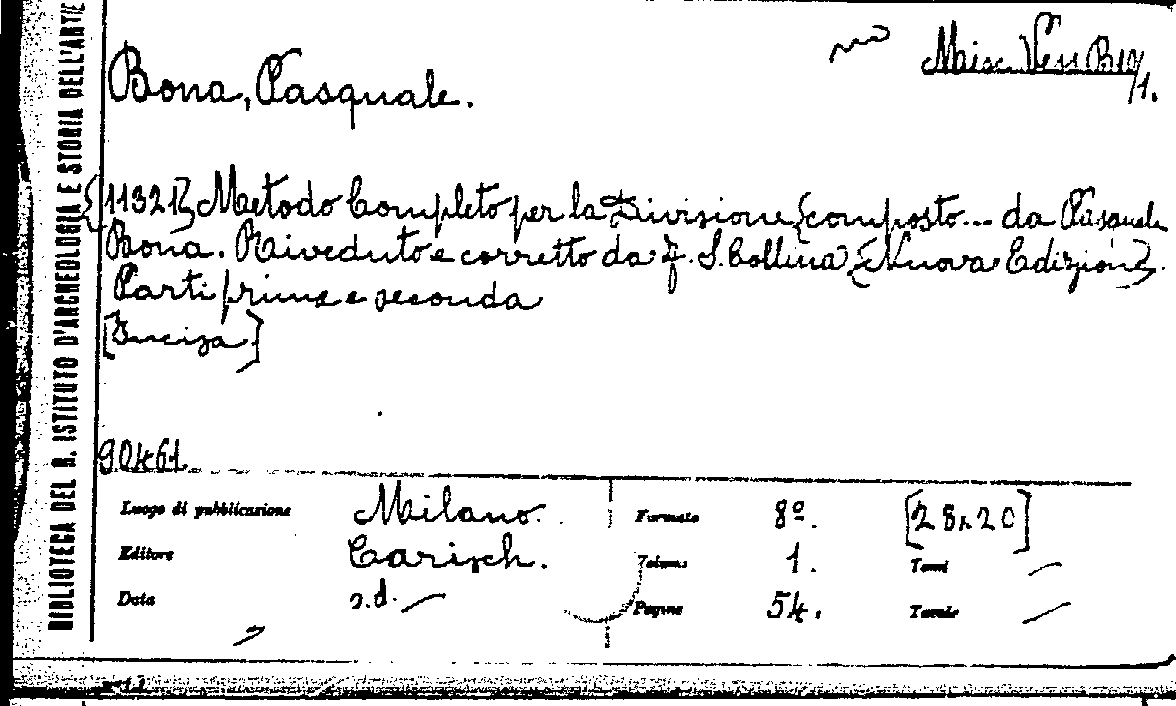 BIBLIOTECA DEL R. ISTITUTO D'ARCHEOLOGIA E STORIA DELL'ARTE
Misc. Ven B10/1.
Bona, Pasquale.
{11321} Metodo Completo per la Divisione {composto... da Pasquale
Bona. Riveduto e corretto da F. S. Collina} {Nuova Edizione}.
Parti prima e seconda
[Inciza]
90461
Luogo di pubblicazione Milano. Formato 8º. [28x20]
Editore Carisch. Volume 1. Tomi
Data s.d. Pagine 54. Tavole